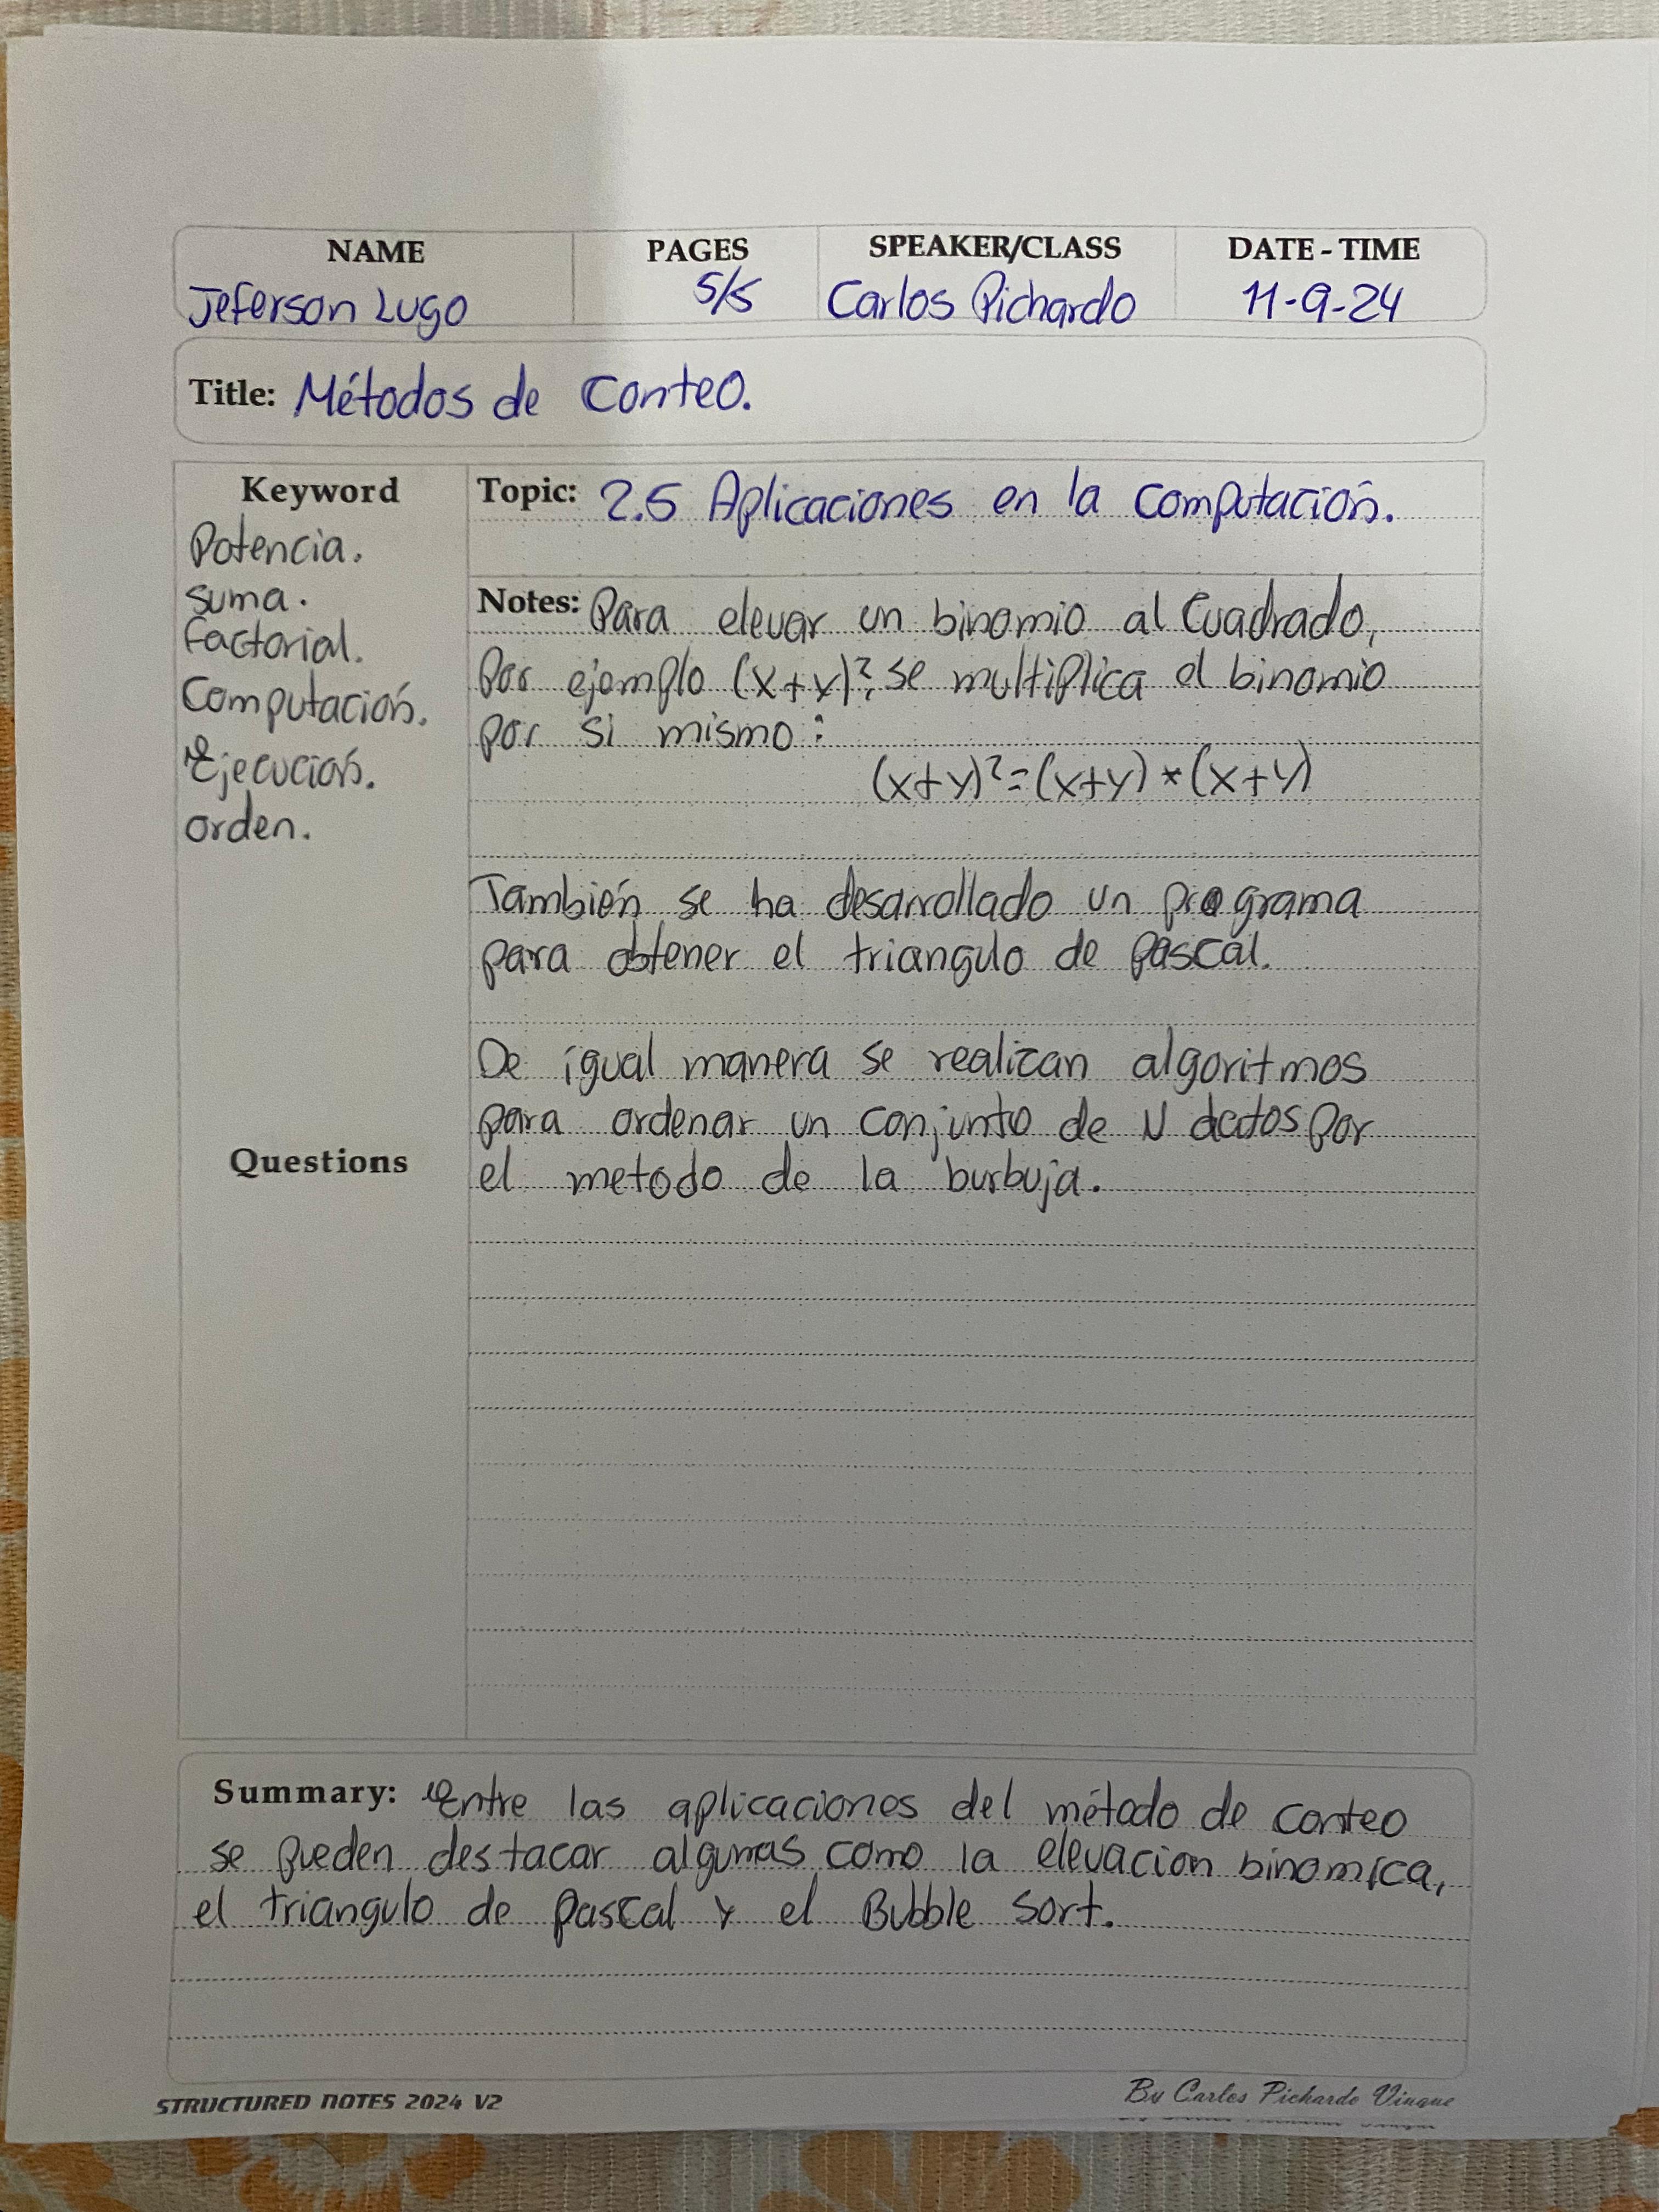 NAME PAGES SPEAKER/CLASS DATE - TIME
Jeferson Lugo 5/5 Carlos Pichardo 11-9-24
Title: Métodos de Conteo.
Keyword
Potencia.
suma.
factorial.
Computación.
Ejecución.
orden.
Questions
Topic: 2.5 Aplicaciones en la computación.
Notes: Para elevar un binomio al Cuadrado,
Por ejemplo (x+y)², se multiplica el binomio
por si mismo:
(x+y)²=(x+y)*(x+y)
También se ha desarrollado un programa
para obtener el triangulo de pascal.
De igual manera se realizan algoritmos
para ordenar un conjunto de N datos por
el metodo de la burbuja.
Summary: Entre las aplicaciones del método de conteo
se pueden destacar algunas como la elevacion binomica,
el triangulo de pascal y el Bubble Sort.
STRUCTURED NOTES 2024 V2
By Carlos Pichardo Viuque